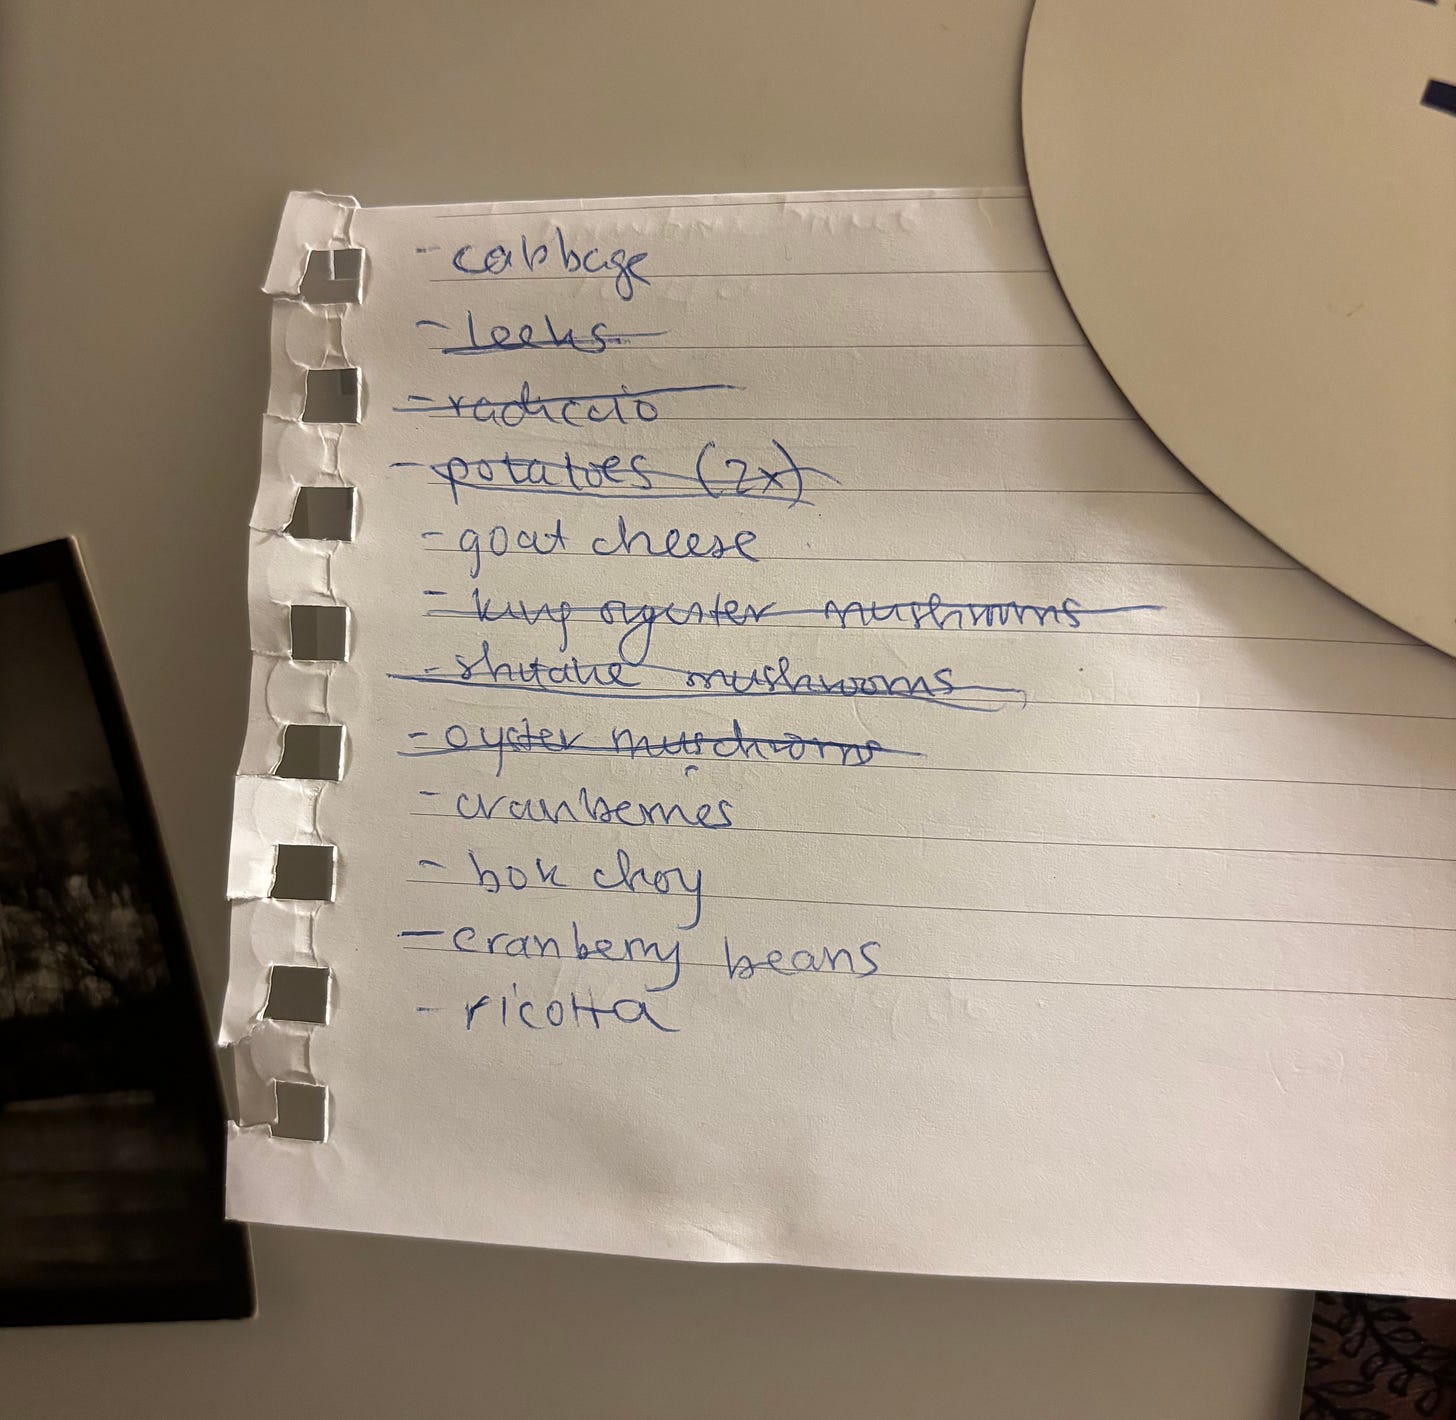 - cabbage
- leeks
- radiccio
- potatoes (2x)
- goat cheese
- king oyester mushrooms
- shitake mushrooms
- oyster muschroms
- cranberries
- bok choy
- cranberry beans
- ricotta